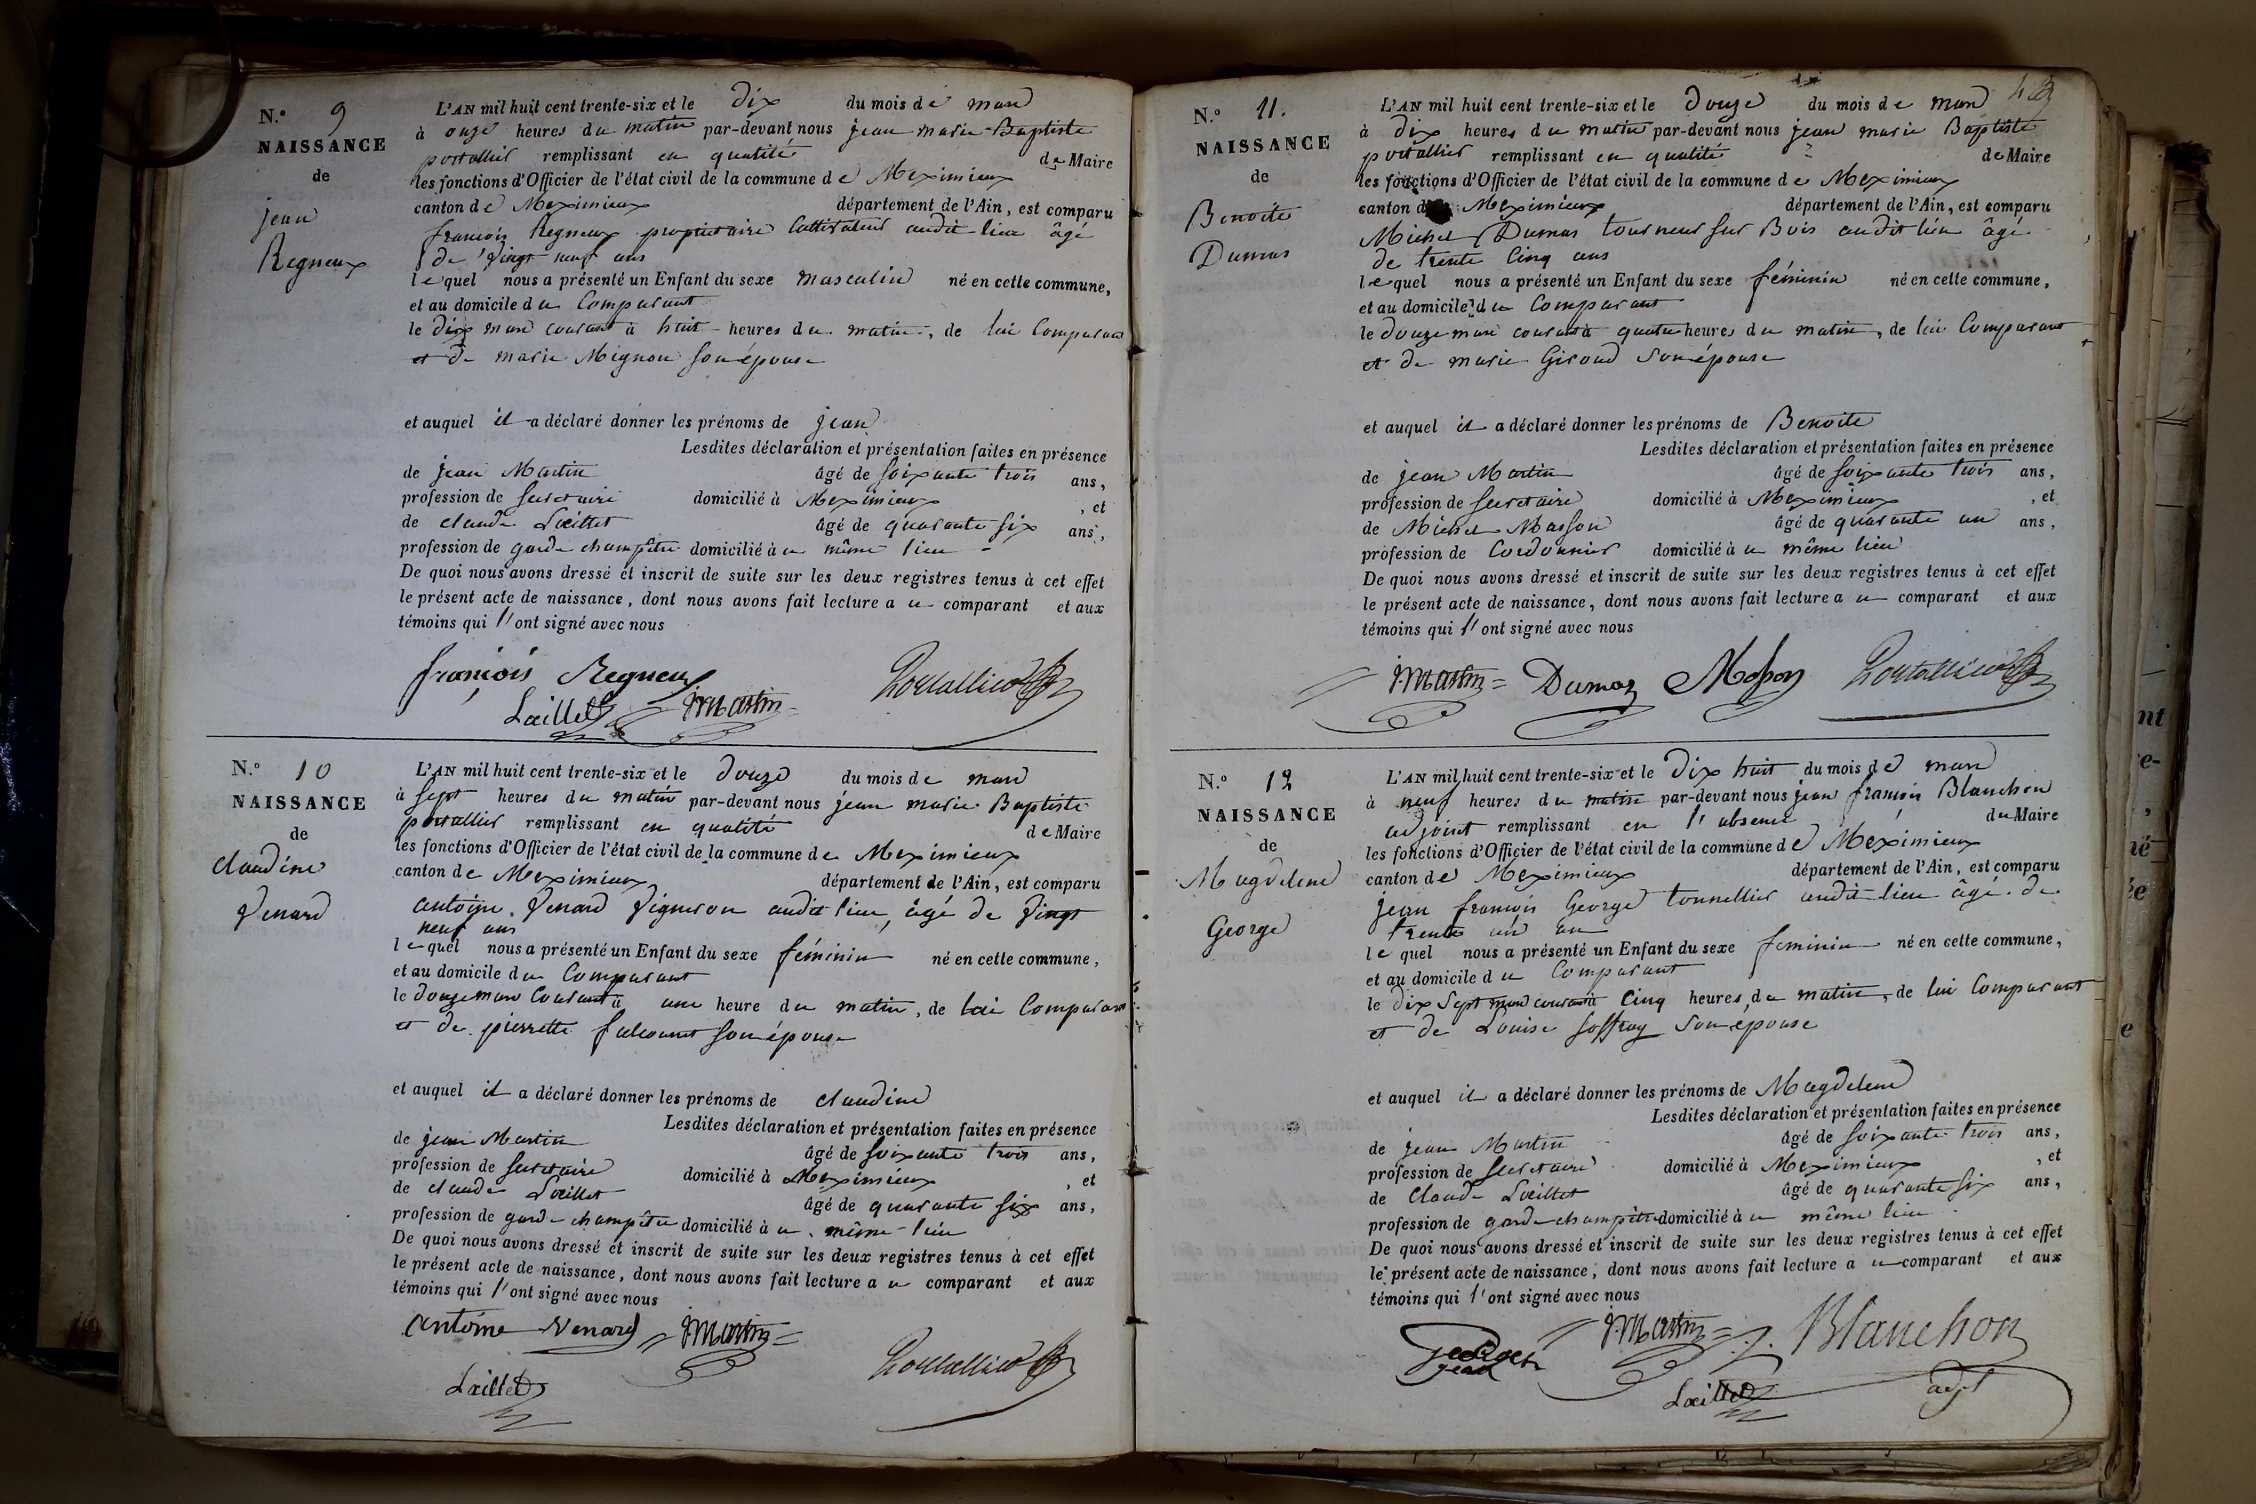 N.° 9
NAISSANCE
de
jean
Regneux
L'AN mil huit cent trente-six et le dix du mois de mars
à onze heures du matin par-devant nous jean marie Baptiste
portallier remplissant en qualité de Maire
les fonctions d'Officier de l'état civil de la commune de Meximieux
canton de Meximieux département de l'Ain, est comparu
francois Regneux propriétaire Cultivateur audit lieu âgé
de vingt neuf ans
lequel nous a présenté un Enfant du sexe masculin né en cette commune,
et au domicile du Comparant
le dix mars courant à huit heures du matin, de lui Comparant
et de marie Mignon son épouse
et auquel il a déclaré donner les prénoms de jean
Lesdites déclaration et présentation faites en présence
de jean Martin âgé de soixante trois ans,
profession de secretaire domicilié à Meximieux, et
de claude Lœillet âgé de quarante six ans,
profession de garde champêtre domicilié à ce même lieu
De quoi nous avons dressé et inscrit de suite sur les deux registres tenus à cet effet
le présent acte de naissance, dont nous avons fait lecture a ce comparant et aux
témoins qui l'ont signé avec nous
françois Regneux Portallier
Lœillet J Martin
N.° 10
NAISSANCE
de
claudine
Venard
L'AN mil huit cent trente-six et le douze du mois de mars
à sept heures du matin par-devant nous jean marie Baptiste
portallier remplissant en qualité de Maire
les fonctions d'Officier de l'état civil de la commune de Meximieux
canton de Meximieux département de l'Ain, est comparu
antoine Venard Vigneron audit lieu, âgé de vingt
neuf ans
lequel nous a présenté un Enfant du sexe féminin né en cette commune,
et au domicile du Comparant
le douze mars Courant à une heure du matin, de lui Comparant
et de pierrette falconnet son épouse
et auquel il a déclaré donner les prénoms de claudine
Lesdites déclaration et présentation faites en présence
de jean Martin âgé de soixante trois ans,
profession de secretaire domicilié à Meximieux, et
de claude Lœillet âgé de quarante six ans,
profession de garde champêtre domicilié à ce même lieu
De quoi nous avons dressé et inscrit de suite sur les deux registres tenus à cet effet
le présent acte de naissance, dont nous avons fait lecture a ce comparant et aux
témoins qui l'ont signé avec nous
antoine Venard J Martin
Lœillet Portallier
N.° 11.
NAISSANCE
de
Benoite
Dumas
L'AN mil huit cent trente-six et le douze du mois de mars
à dix heures du matin par-devant nous jean marie Baptiste
portallier remplissant en qualité de Maire
les fonctions d'Officier de l'état civil de la commune de Meximieux
canton de Meximieux département de l'Ain, est comparu
Michel Dumas tourneur sur Bois audit lieu âgé
de trente Cinq ans
lequel nous a présenté un Enfant du sexe féminin né en cette commune,
et au domicile du Comparant
le douze mars courant à quatre heures du matin, de lui Comparant
et de marie Giroud son épouse
et auquel il a déclaré donner les prénoms de Benoite
Lesdites déclaration et présentation faites en présence
de jean Martin âgé de soixante trois ans,
profession de secretaire domicilié à Meximieux, et
de Michel Masson âgé de quarante un ans,
profession de Cordonnier domicilié à ce même lieu
De quoi nous avons dressé et inscrit de suite sur les deux registres tenus à cet effet
le présent acte de naissance, dont nous avons fait lecture a ce comparant et aux
témoins qui l'ont signé avec nous
J Martin Dumas Masson Portallier
N.° 12
NAISSANCE
de
Magdelene
George
L'AN mil huit cent trente-six et le dix huit du mois de mars
à neuf heures du matin par-devant nous jean françois Blanchon
adjoint remplissant en l'absence du Maire
les fonctions d'Officier de l'état civil de la commune de Meximieux
canton de Meximieux département de l'Ain, est comparu
jean francois George tonnellier audit lieu âgé de
trente un an
lequel nous a présenté un Enfant du sexe feminin né en cette commune,
et au domicile du Comparant
le dix sept mars courant à Cinq heures du matin, de lui Comparant
et de Louise Joffray son épouse
et auquel il a déclaré donner les prénoms de Magdelene
Lesdites déclaration et présentation faites en présence
de jean Martin âgé de soixante trois ans,
profession de secretaire domicilié à Meximieux, et
de Claude Lœillet âgé de quarante six ans,
profession de garde champêtre domicilié à ce même lieu
De quoi nous avons dressé et inscrit de suite sur les deux registres tenus à cet effet
le présent acte de naissance, dont nous avons fait lecture a ce comparant et aux
témoins qui l'ont signé avec nous
J Martin Blanchon
jean
Lœillet adjt